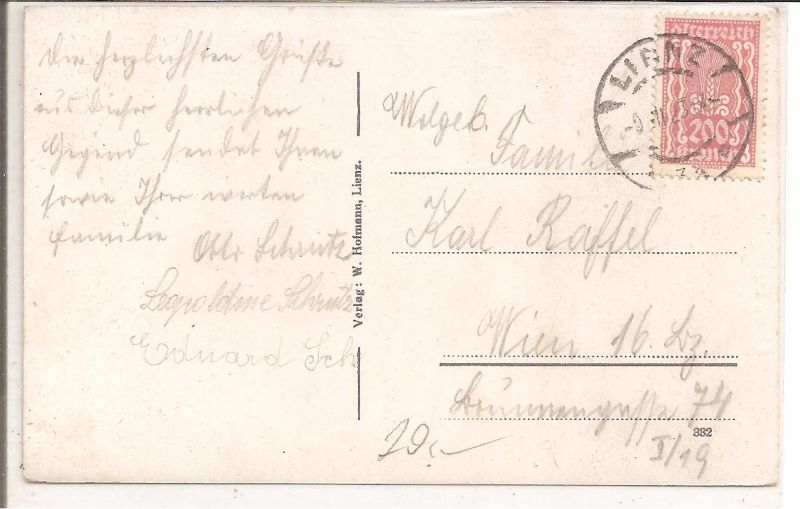 Die herzlichsten Grüße
aus dieser herrlichen
Gegend sendet Ihnen
sowie Ihrer werten
Familie
Otto Schrutz
Leopoldine Schrutz
Eduard Sch
Verlag: W. Hofmann, Lienz.
Österreich
200
LIENZ
Wolgeb.
Familie
Karl Raffel
Wien 16. Bz.
Brunnengasse 74
I/19
332
20.-